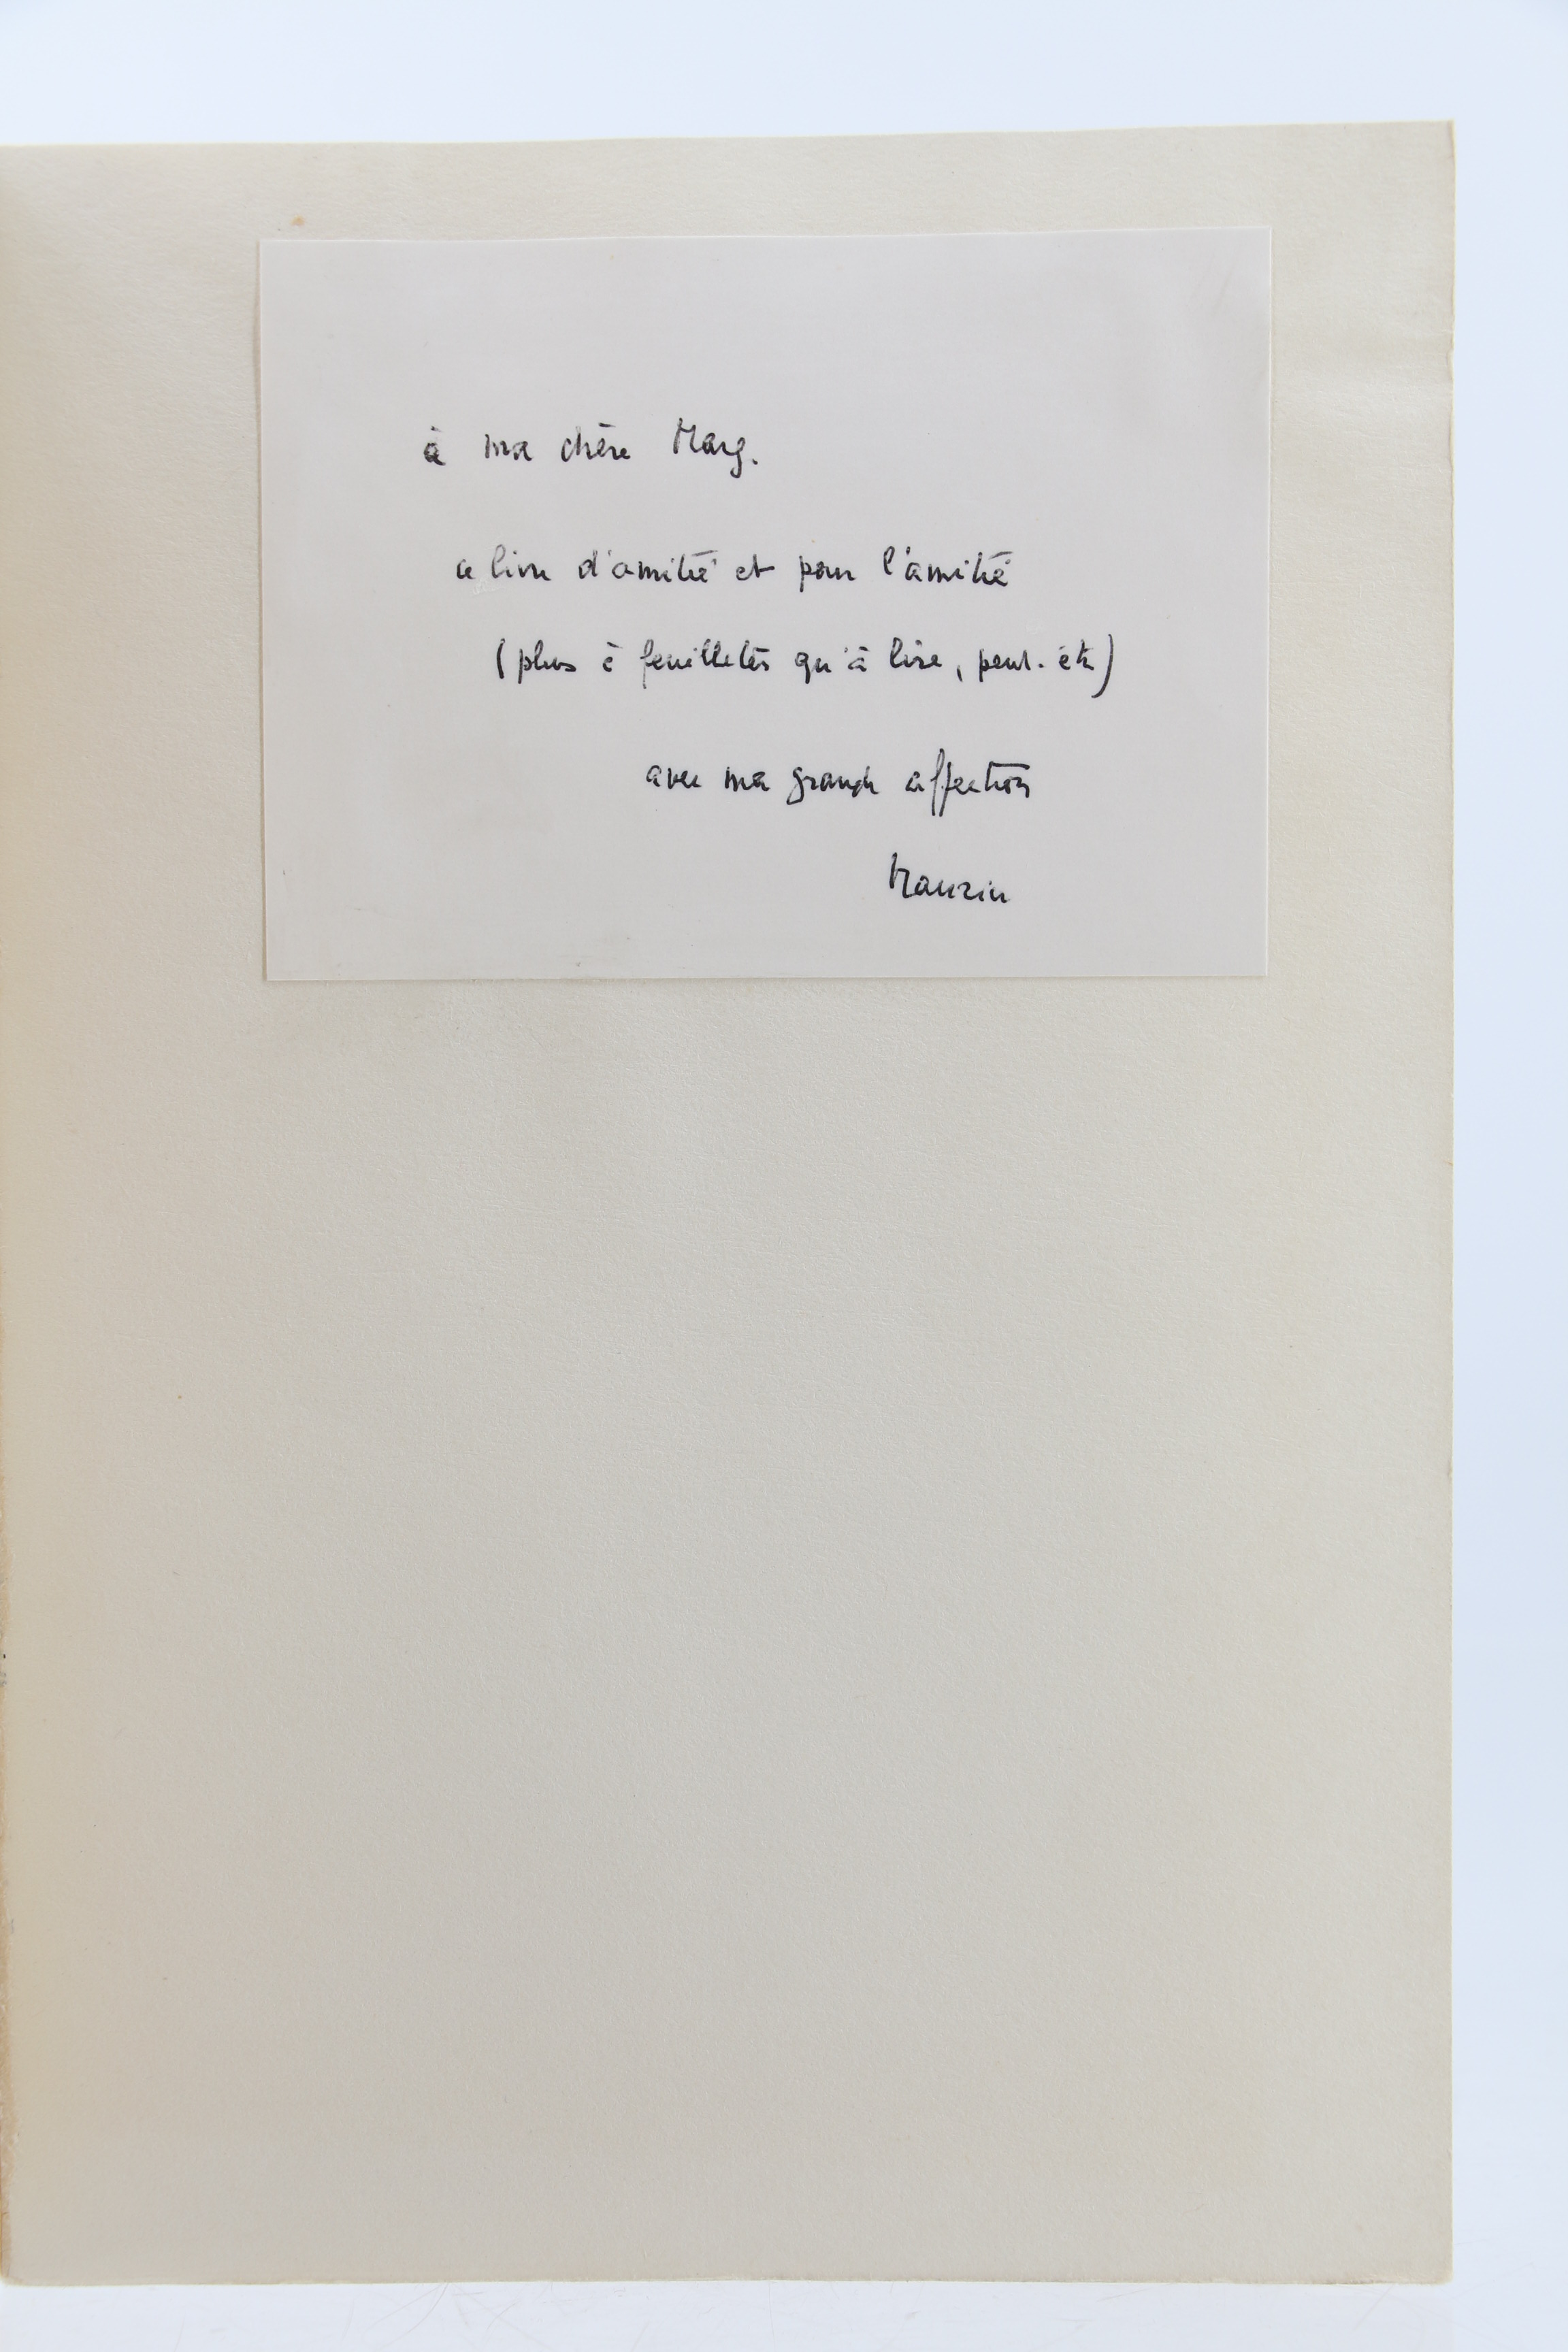 à ma chère Marg.
ce livre d'amitié et pour l'amitié
(plus à feuilleter qu'à lire, peut-être)
avec ma grande affection
Maurice